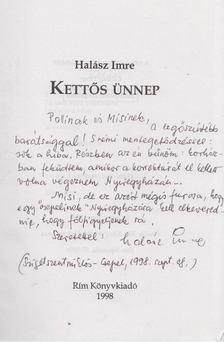 Halász Imre
KETTŐS ÜNNEP
Polinak és Misinek,
a legőszintébb
barátsággal! Személyi mentegetődzéssel:
sok a hiba. Részben az én bűnöm: kórház-
ban feküdtem, amikor a korrektúrát el kellett
volna végeznem Nyíregyházán...
Misi, de ez azért mégis furcsa, hogy
egy "csepelinek" Nyíregyházára kell elkeverED-
nie, hogy fölfigyeljenek rá.
Szeretettel:
Halász Imre
(Szigetszentmiklós-Csepel, 1998. szept.
Rím Könyvkiadó
1998